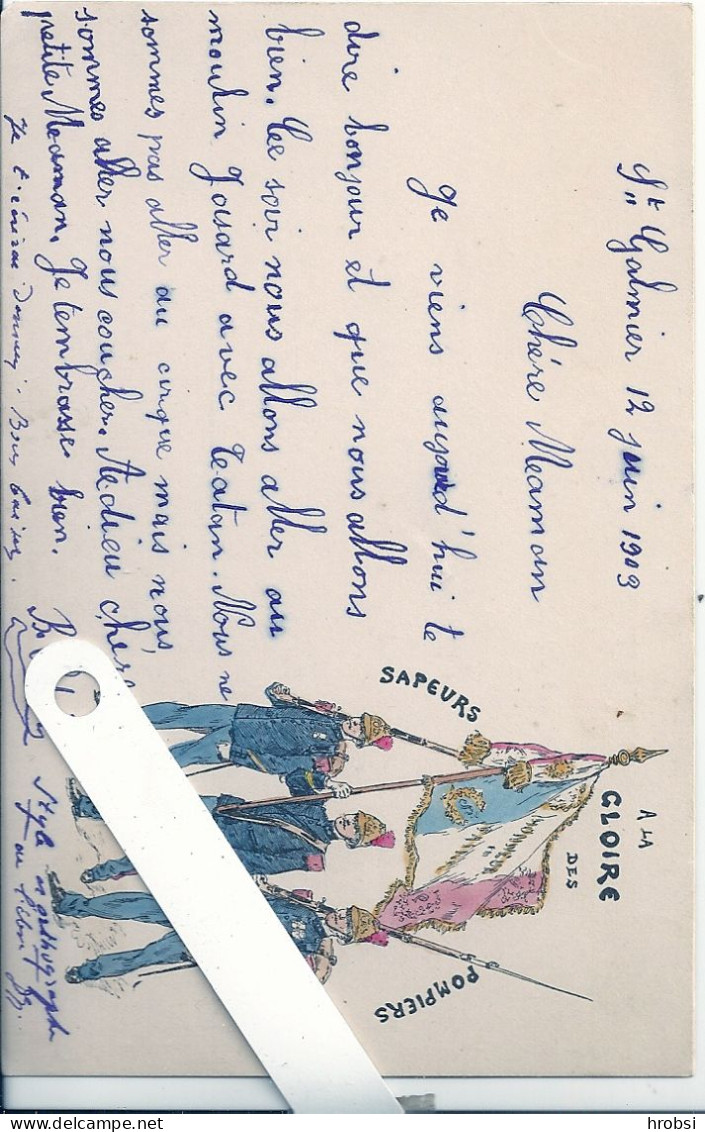 St Galmier 12 juin 1903
Chère Maman
Je viens aujourd'hui te
dire bonjour et que nous allons
bien. Ce soir nous allons aller au
moulin Jousard avec Teatan. Nous ne
sommes pas aller au cirque mais nous
sommes aller nous coucher. Adieu chère
petite Maman. Je tembrasse bien.
Style et orthographe
A LA
GLOIRE
DES
SAPEURS
POMPIERS
hrobsi